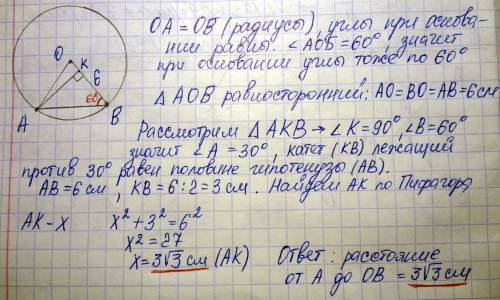 OA = OB (радиусы), углы при основа-
нии равны. ∠AOB = 60°, значит
при основании углы тоже по 60°
△ AOB равносторонний: AO=BO=AB=6см
O
K
6
60°
A
B
Рассмотрим △ AKB → ∠K = 90°, ∠B = 60°
значит ∠A = 30°, катет (KB) лежащий
против 30° равен половине гипотенузы (AB).
AB = 6 см, KB = 6 : 2 = 3 см. Найдем AK по Пифагору
AK - x
x² + 3² = 6²
x² = 27
x = 3√3 см (AK)
Ответ: расстояние
от A до OB = 3√3 см